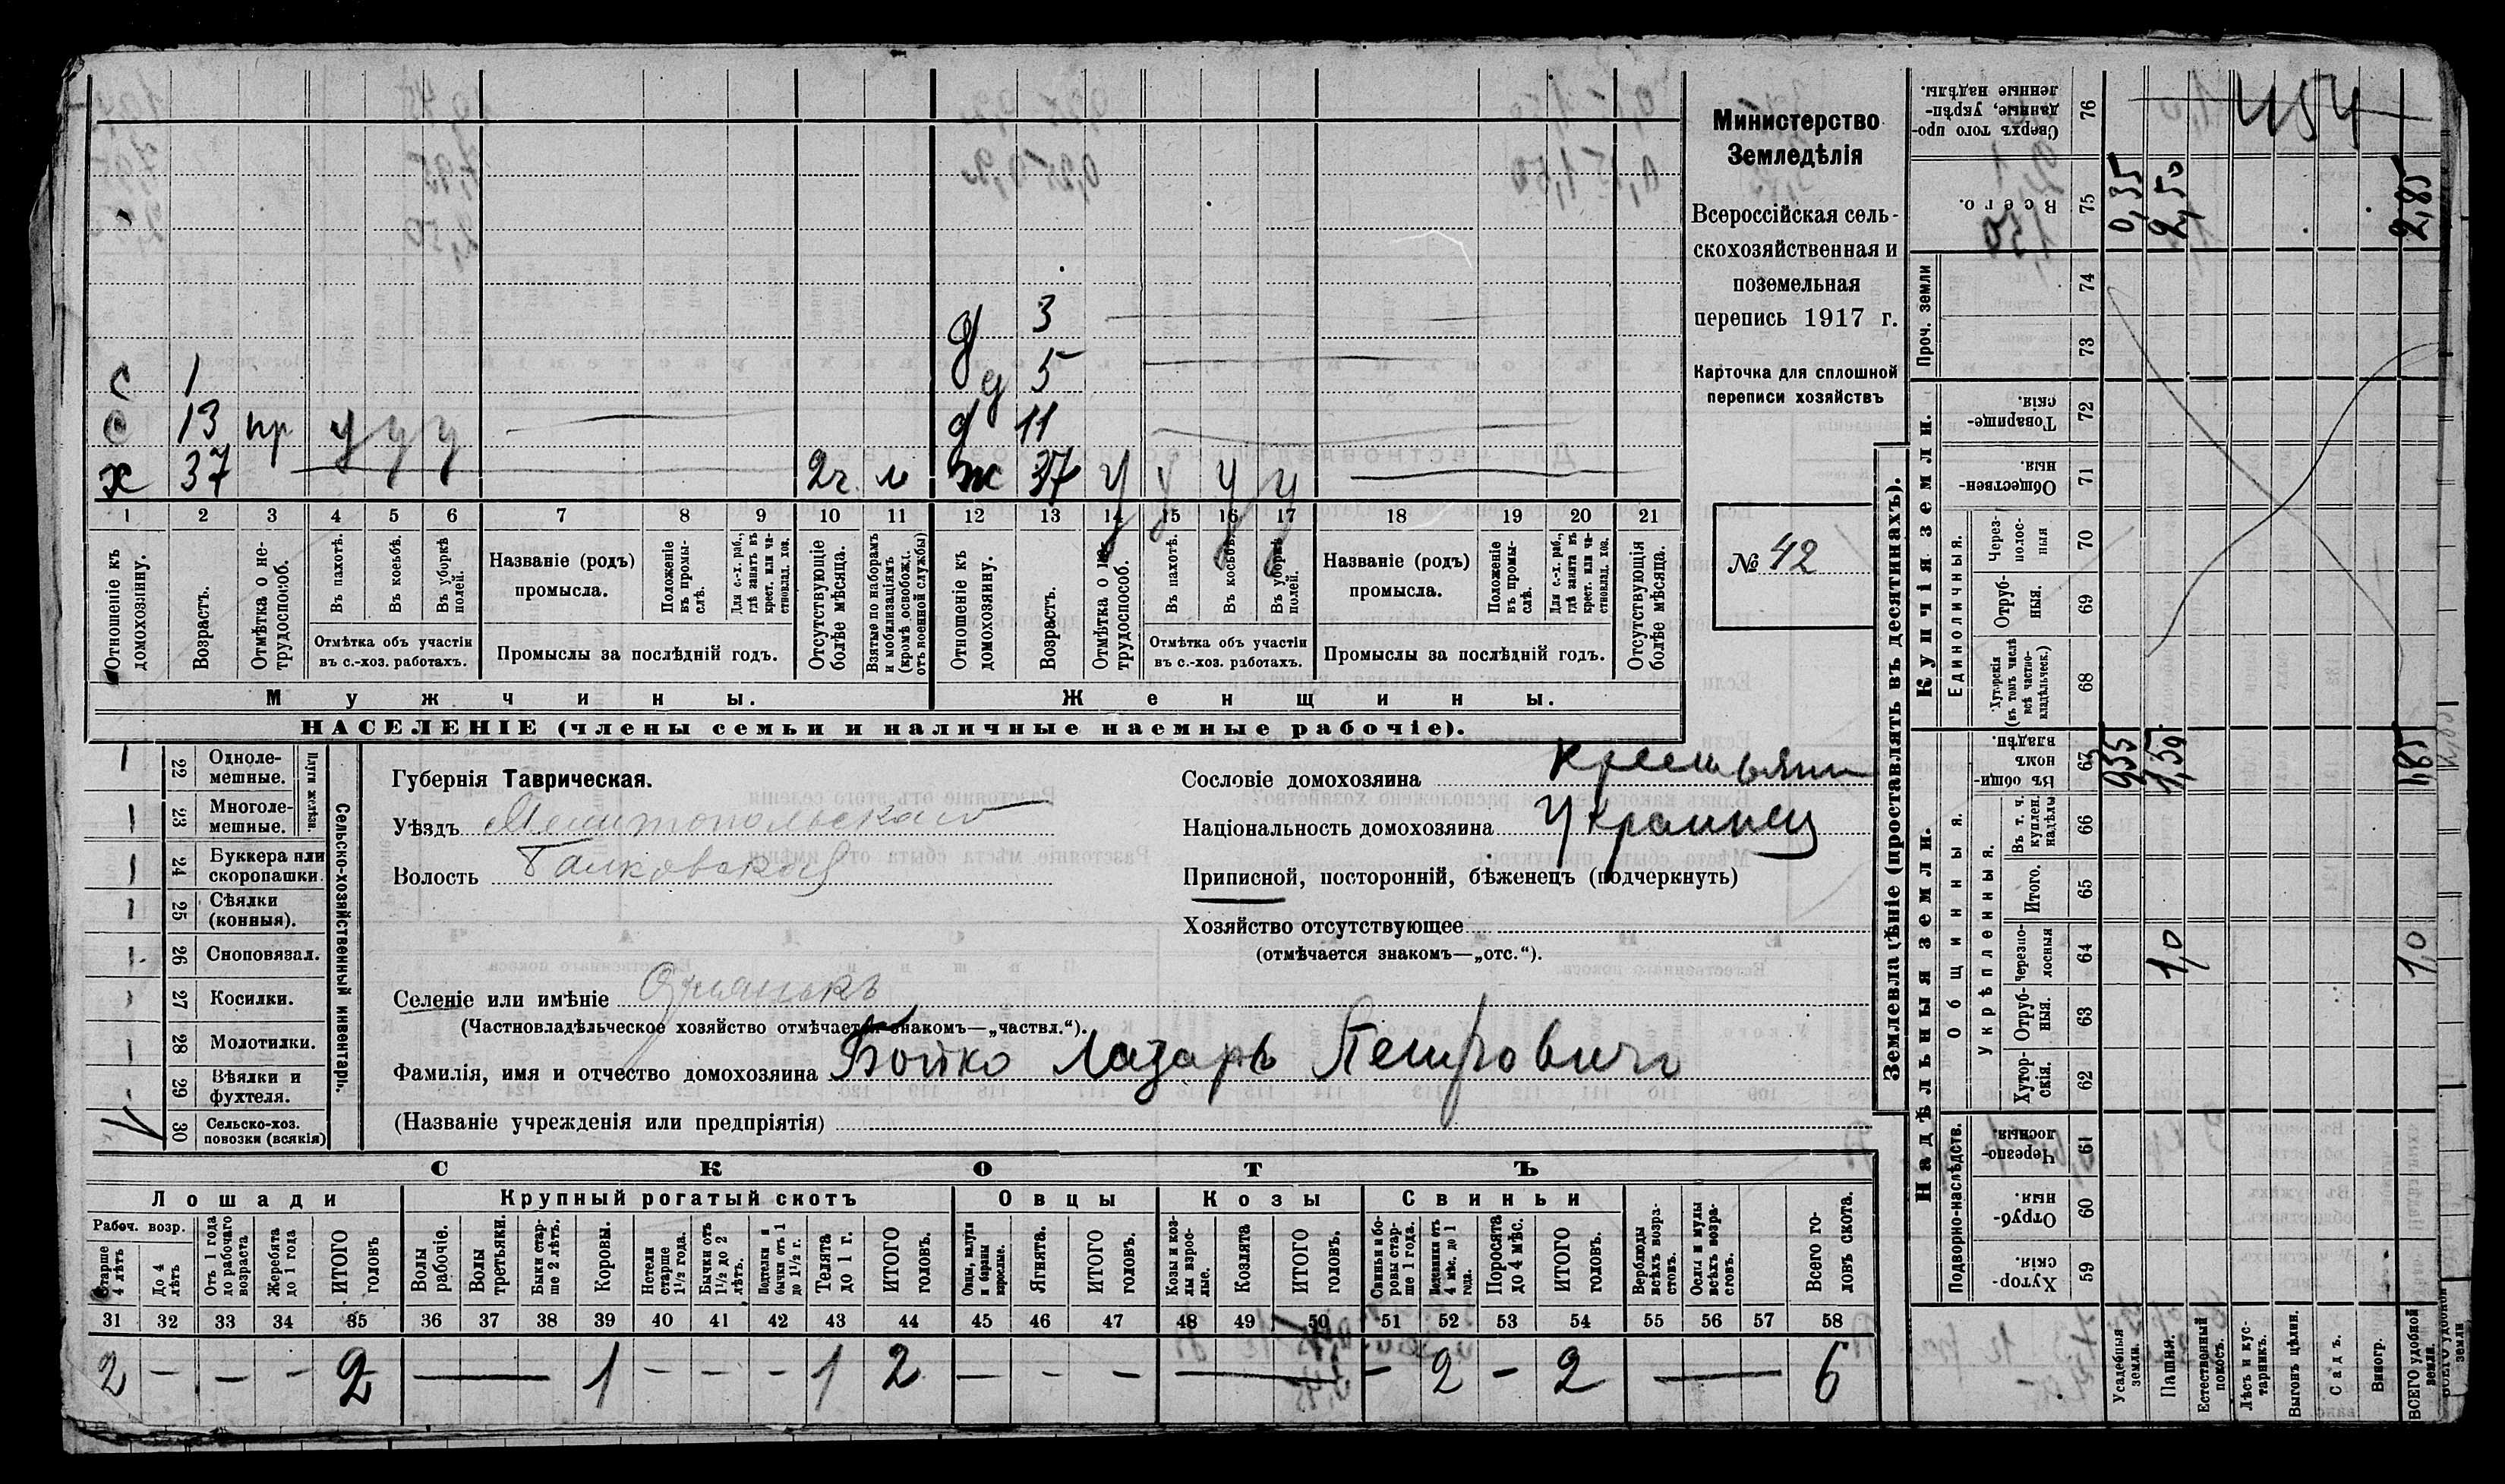 с 1
с 13 пр у у у
х 37 2 г. м
д 3
д 5
д 11
ж 37 у у у у
1 2 3 4 5 6 7 8 9 10 11 12 13 14 15 16 17 18 19 20 21
Отношеніе къ домохозяину.
Возрастъ.
Отмѣтка о не-трудоспособ.
Въ пахотѣ.
Въ косьбѣ.
Въ уборкѣ полей.
Отмѣтка объ участіи
въ с.-хоз. работахъ.
Названіе (родъ)
промысла.
Положеніе въ промы-слѣ.
Для с.-х. раб., гдѣ занятъ въ крест. или ча-стновлад. хоз.
Промыслы за послѣдній годъ.
Отсутствующіе болѣе мѣсяца.
Взятые по наборамъ и мобилизаціямъ (кромѣ освобожд. отъ военной службы)
Отношеніе къ домохозяину.
Возрастъ.
Отмѣтка о трудоспособ.
Въ пахотѣ.
Въ косьбѣ.
Въ уборкѣ полей.
Отмѣтка объ участіи
въ с.-хоз. работахъ.
Названіе (родъ)
промысла.
Положеніе въ промы-слѣ.
Для с.-х. раб., гдѣ занята въ крест. или ча-стновлад. хоз.
Промыслы за послѣдній годъ.
Отсутствующія болѣе мѣсяца.
Мужчины.
Женщины.
НАСЕЛЕНІЕ (члены семьи и наличные наемные рабочіе).
Министерство
Земледѣлія
Всероссійская сель-
скохозяйственная и
поземельная
перепись 1917 г.
Карточка для сплошной
переписи хозяйствъ
№ 42
22 Одноле-мешные.
23 Многоле-мешные.
Плуги желѣзн.
24 Буккера или скоропашки.
25 Сѣялки (конныя).
26 Сноповязал.
27 Косилки.
28 Молотилки.
29 Вѣялки и фухтеля.
30 Сельско-хоз. повозки (всякія)
Сельско-хозяйственный инвентарь.
Губернія Таврическая.
Уѣздъ Мелитопольскаго
Волость
Селеніе или имѣніе
(Частновладѣльческое хозяйство отмѣчается знакомъ—„частвл.“).
Фамилія, имя и отчество домохозяина Бойко Лазарь Петровичъ
(Названіе учрежденія или предпріятія)
Сословіе домохозяина Крестьянин
Національность домохозяина Украинец
Приписной, посторонній, бѣженецъ (подчеркнуть)
Хозяйство отсутствующее
(отмѣчается знакомъ—„отс.“).
СКОТЪ
Лошади Крупный рогатый скотъ Овцы Козы Свиньи
Рабоч. возр.
Старше 4 лѣтъ
До 4 лѣтъ
Отъ 1 года до рабочаго возраста
Жеребята до 1 года
ИТОГО головъ
Волы рабочіе.
Волы третьяки.
Быки стар-ше 2 лѣтъ.
Коровы.
Нетели старше 1½ года.
Бычки отъ 1½ до 2 лѣтъ.
Подтелки и бычки отъ 1 до 1½ г.
Телята до 1 г.
ИТОГО головъ.
Овцы, валухи и бараны взрослые.
Ягнята.
ИТОГО головъ.
Козы и коз-лы взрос-лые.
Козлята
ИТОГО головъ.
Свиньи и бо-ровы стар-ше 1 года.
Подсвинки отъ 4 мѣс. до 1 года.
Поросята до 4 мѣс.
ИТОГО головъ.
Верблюды всѣхъ возра-стовъ.
Ослы и мулы всѣхъ возра-стовъ.
Всего го-ловъ скота.
31 32 33 34 35 36 37 38 39 40 41 42 43 44 45 46 47 48 49 50 51 52 53 54 55 56 57 58
2 — — - 2 — 1 - - - 1 2 — - - — - 2 - 2 — 6
Землевладѣніе (проставлять въ десятинахъ).
Сверхъ того про-данные, укрѣп-ленные надѣлы. 76
Всего. 75
Проч. земли
74
73
Купчія земли.
Товарище-скія. 72
Обществен-ныя. 71
Единоличныя.
Через-полос-ныя 70
Отруб-ныя. 69
Хуторскія (въ томъ числѣ всѣ частно-владѣльческ.) 68
Надѣльныя земли.
Общинныя.
Въ общи-номъ владѣн. 67
Укрѣпленныя.
Въ т. ч. куплен. надѣлы 66
Итого. 65
Черезпо-лосныя 64
Отруб-ныя. 63
Хутор-скія. 62
Подворно-наслѣдств.
Черезпо-лосныя. 61
Отруб-ныя. 60
Хутор-скія. 59
Усадебныя земли.
Пашня.
Естественный покосъ.
Лѣсъ и кус-тарникъ.
Выгонъ цѣлин.
Садъ.
Виногр.
ВСЕГО удобной земли.
454
0,35
2,50
2,85
1,50
1,85
1,0
1,0